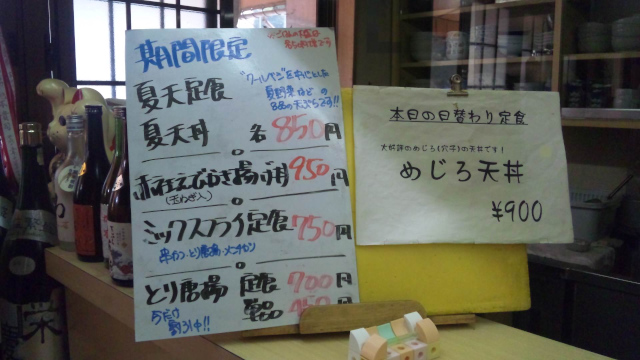 期間限定
夏天定食
夏天丼 各850円
"クールヤサイ"を中心とした
夏野菜などの
8品の天ぷらです!!
赤社えびかき揚げ丼 950円
(玉ねぎ入)
ミックスフライ定食 750円
串カツ・とり唐揚・メンチカツ
とり唐揚 定食 700円
単品 450円
本日の日替わり定食
大好評のめじろ(穴子)の天丼です!
めじろ天丼
¥900
栄